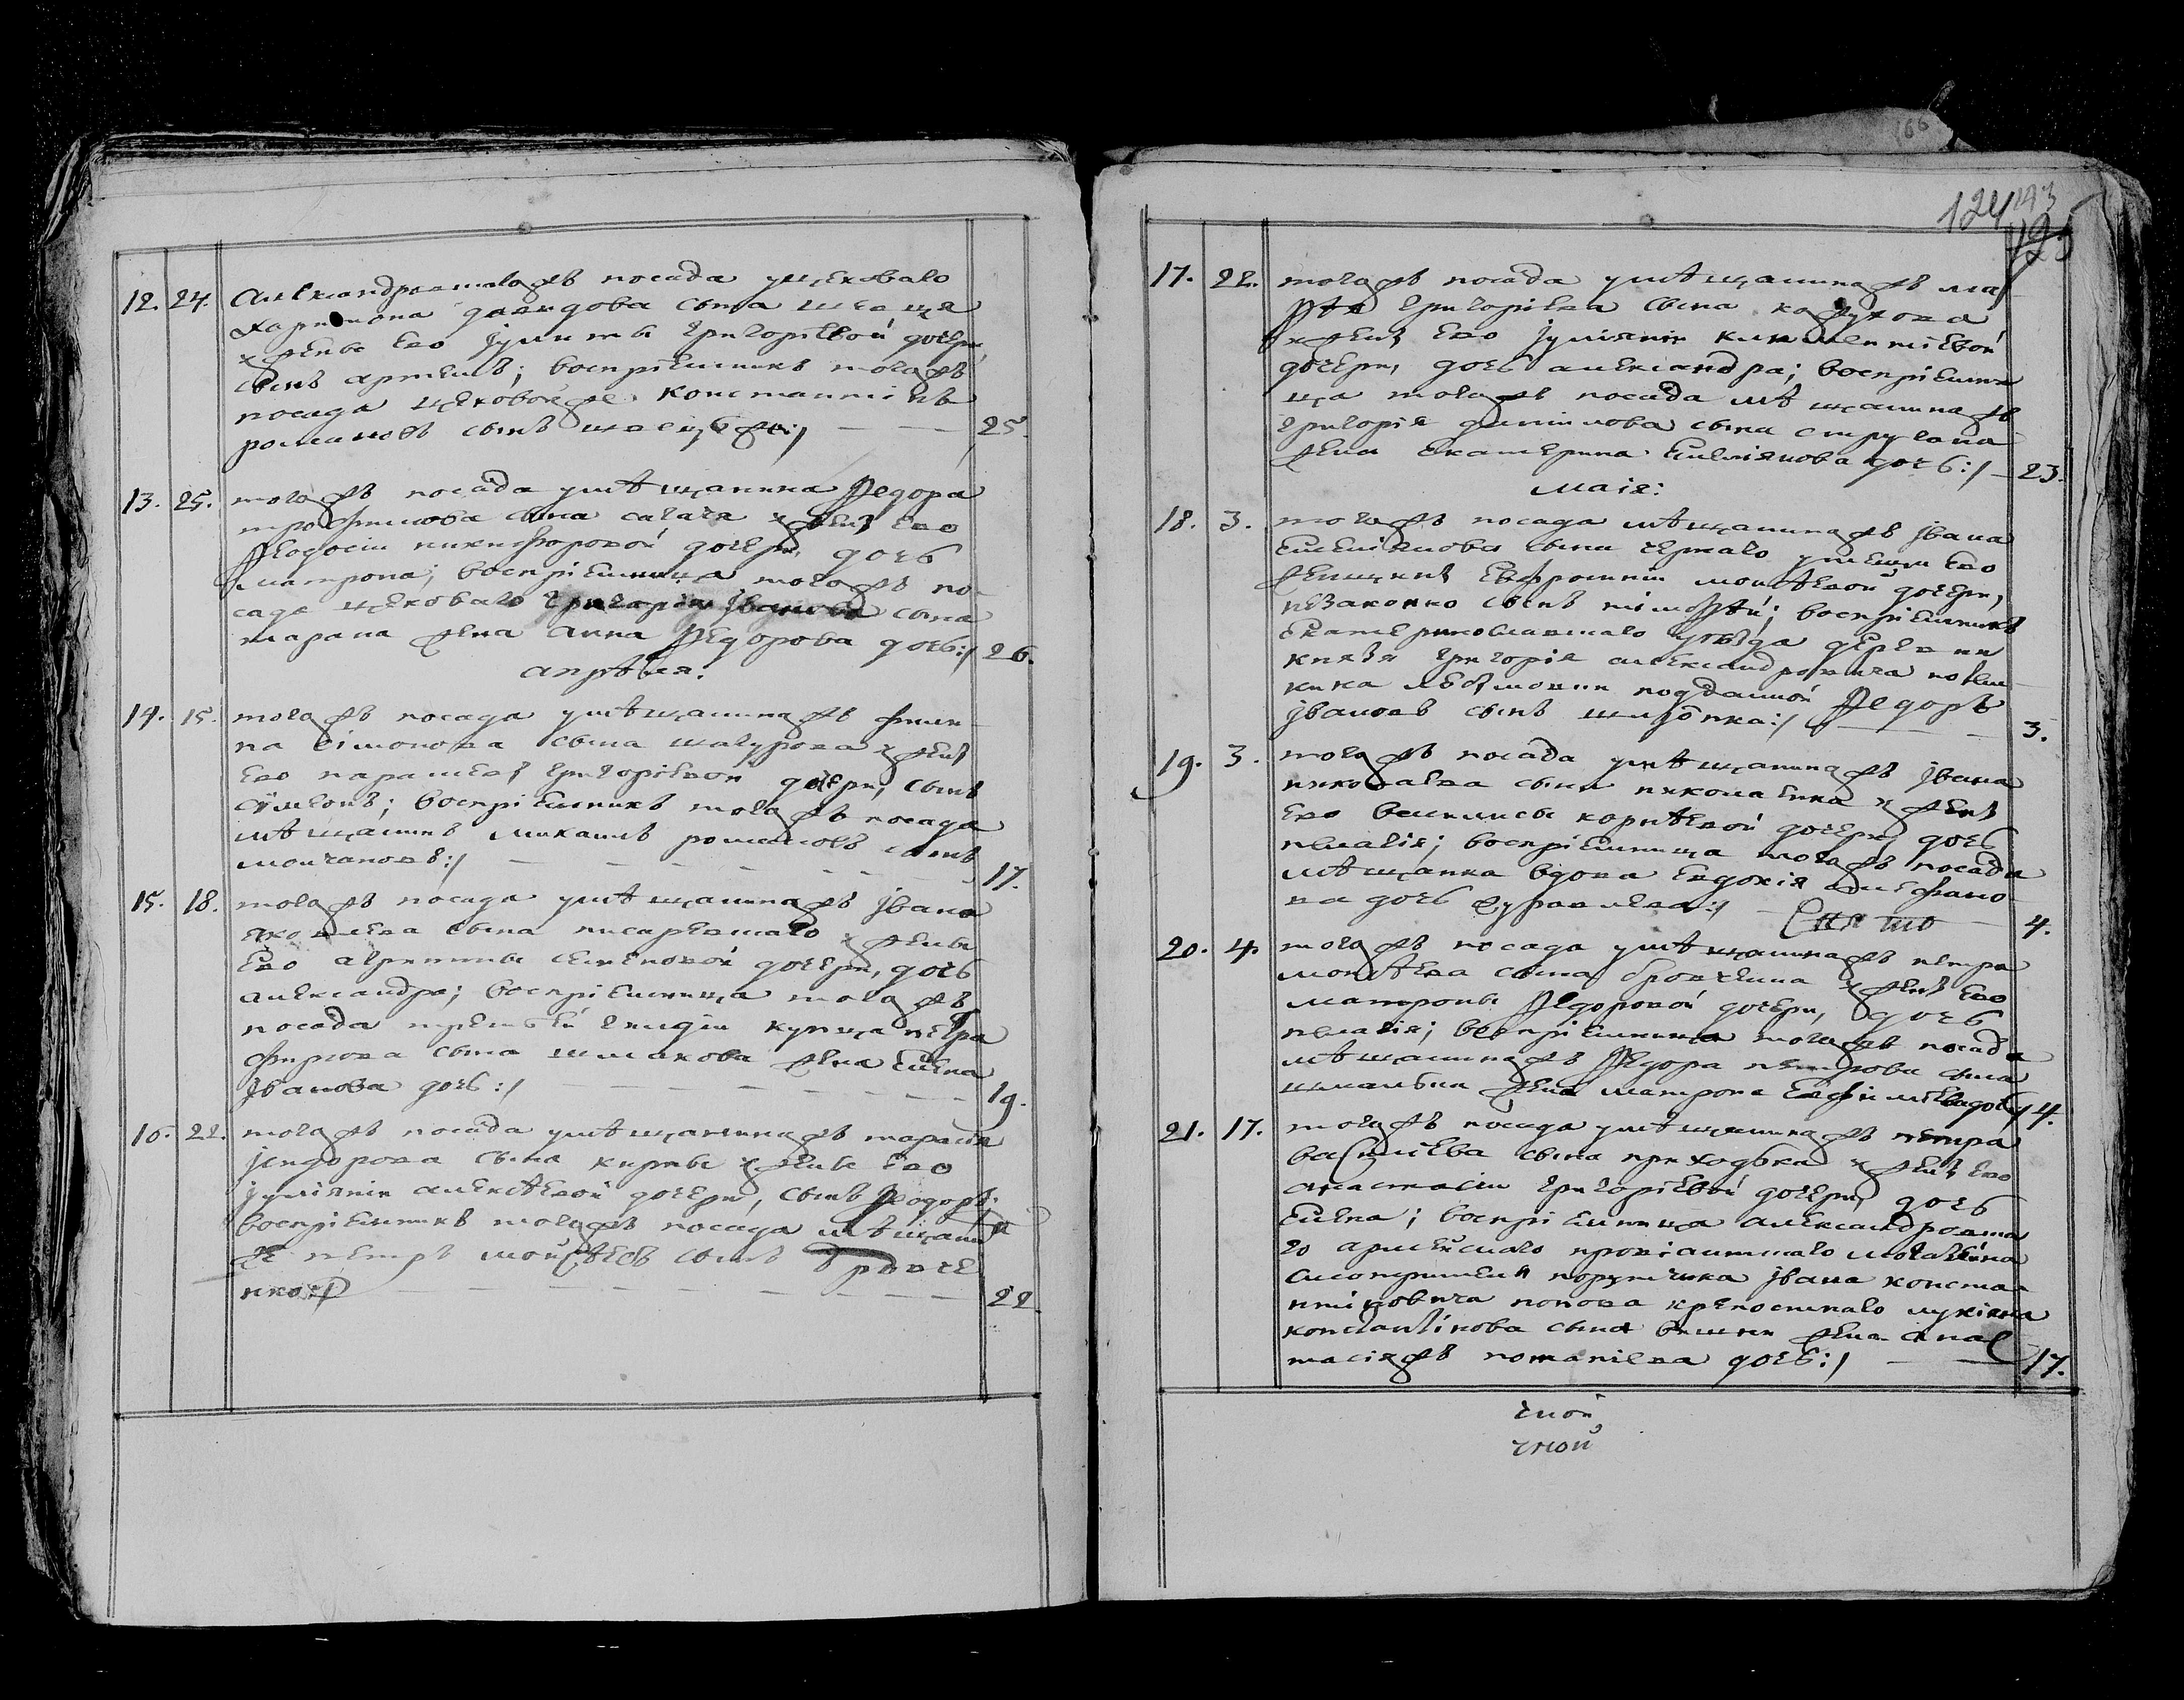 12. 24. Александровскаго жъ посада у цеховаго
Харитона давидова сына швеця
жены его Іулиты григоріевой дочери,
сынъ артемъ; воспріемникъ того жъ
посада цеховой же Константінъ
романовъ сынъ 25.
13. 25. того жъ посада у мѣщанина Федора
трофимова сына сагача жены его
Феодосіи никифоровой дочери, дочь
Матрона; воспріемница того жъ по
сада цеховаго григорія Іванова сына
тарана жена анна Федорова дочь:/ 26.
апрѣля.
14. 15. того жъ посада у мѣщанина жъ фили
па сімонова сына шапурова жены
его параскевы григоріевой дочери, сынъ
Сѵмеонъ; воспріемникъ того жъ посада
мѣщанинъ романовъ сынъ
молчановъ:/ 17.
15. 18. того жъ посада у мѣщанина жъ Івана
яковлева сына писаревскаго жены
его агрипины семеновой дочери, дочь
александра; воспріемница того жъ
посада третьей гилдіи купца петра
фирсова сына шмакова жена Елена
Іванова дочь:/ 19.
16. 22. того жъ посада у мѣщанина жъ тарасія
сідорова сына кирпы жены его
Іуліяніи алексѣевой дочери, сынъ Феодоръ;
воспріемникъ того жъ посада мѣщанин
же петръ моисѣевъ сынъ бровче
нко:/ 22
124 143
123
17. 22. того жъ посада у мѣщанина жъ ма
тфѣя григоріева сына кожухова
жены его Іуліяніи климентіевой
дочери, дочь александра; воспріемни
ца того жъ посада мѣщанина жъ
григорія данилова сына стругана
жена екатерина Емеліянова дочь:/ 23.
Маія:
18. 3. того жъ посада мѣщанина жъ Івана
Емеліянова сына черкаго у тещи его
Евфросиніи моисѣевой дочери,
незаконно сынъ тімофѣй; воспріемникъ
екатеринославскаго уѣзда деревни
князя григорія александровича потем
кина подданной Федоръ
Івановъ сынъ 3.
19. 3. того жъ посада у мѣщанина жъ Івана
николаева сына николаенка жены
его василисы корнѣевой дочери, дочь
пелагія; воспріемница того жъ посада
мѣщанка вдова Евдокія стефано
ва дочь журавлева:/ 4.
20. 4. того жъ посада у мѣщанина жъ петра
моисѣева сына бровченка жены его
матроны Федоровой дочери, дочь
пелагія; воспріемница того жъ посада
мѣщанина жъ Федора петрова сына
жена матрона Евфиміева дочь:/ 4.
21. 17. того жъ посада у мѣщанина жъ петра
василіева сына приходька жены его
анастасіи григоріевой дочери, дочь
Елена; воспріемница александровска
го армейскаго провіантскаго магазейна
смотрителя поручика Івана конста
нтіновича попова крепостнаго лукіяна
константінова сына вишни жена анас
тасія жъ романнева дочь:/ 17.